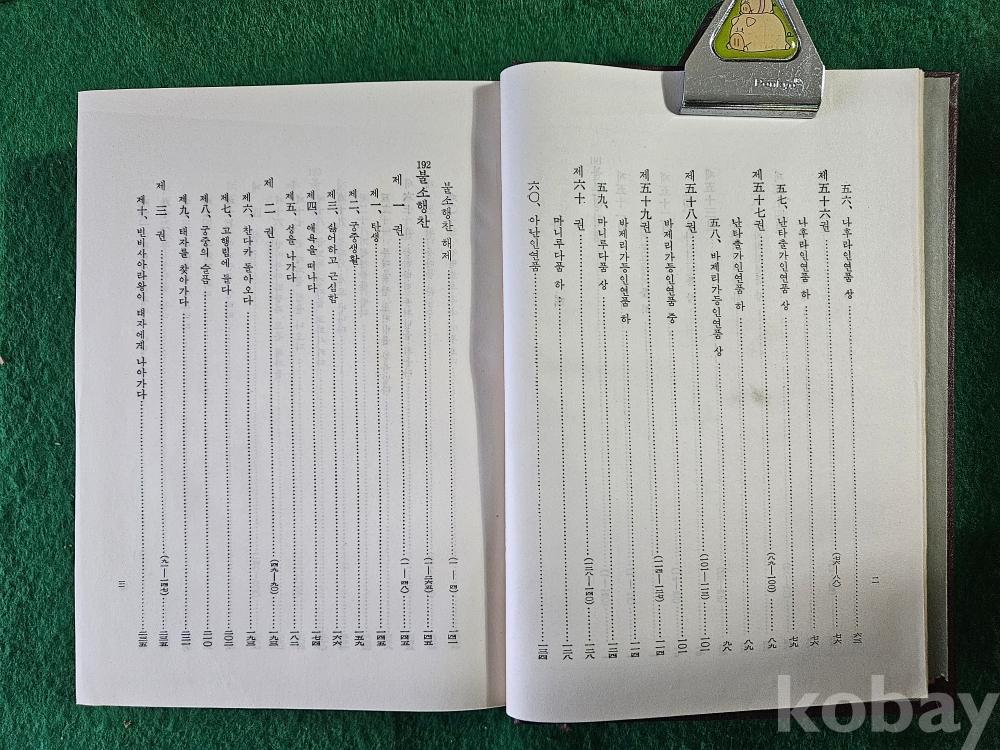 Pankyo
五六、나후라인연품 상 六三
제五十六권 (七六—八八) 七六
나후라인연품 하 七六
五七、난타출가인연품 상 七九
제五十七권 (八九—一〇〇) 八九
난타출가인연품 하 八九
五八、바제리가등인연품 상 九八
제五十八권 (一〇一—一一三) 一〇一
바제리가등인연품 중 一〇一
제五十九권 (一一四—一二七) 一一四
바제리가등인연품 하 一一四
五九、마니루다품 상 一二四
제六十 권 (一二八—一四〇) 一二八
마니루다품 하 一二八
六〇、아난인연품 一三四
二
불소행찬 해제 (一—四) 一四一
192 불소행찬 (一—二六五) 一四五
제 一 권 (一—四八) 一四五
제一、탄생 一四五
제二、궁중생활 一五九
제三、싫어하고 근심함 一六六
제四、애욕을 떠나다 一七四
제五、성을 나가다 一八二
제 二 권 (四九—九〇) 一九三
제六、찬다카 돌아오다 一九三
제七、고행림에 들다 二〇三
제八、궁중의 슬픔 二一〇
제九、태자를 찾아가다
제 三 권 (九一—一四七) 二三五
제十、빈비사아라왕이 태자에게 나아가다 二三五
三
kobay